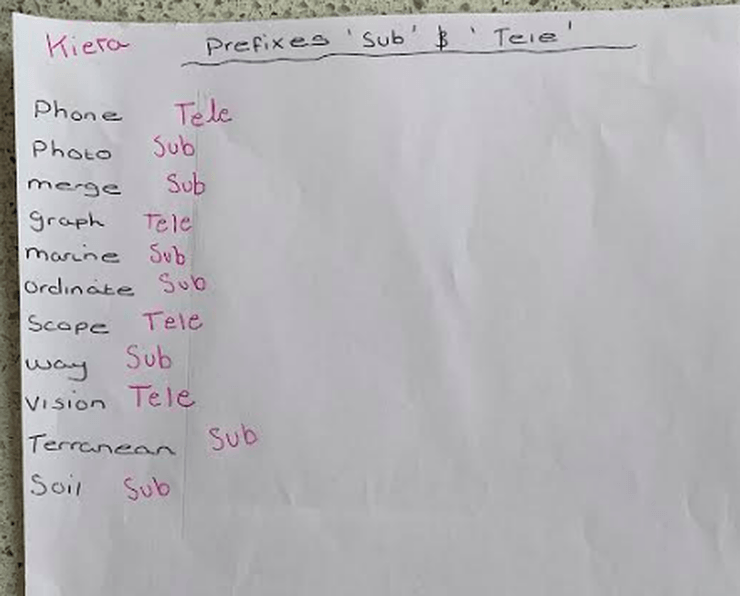 Kiera Prefixes 'Sub' & 'Tele'
Phone Tele
Photo Sub
merge Sub
graph Tele
marine Sub
ordinate Sub
Scope Tele
way Sub
vision Tele
Terranean Sub
Soil Sub